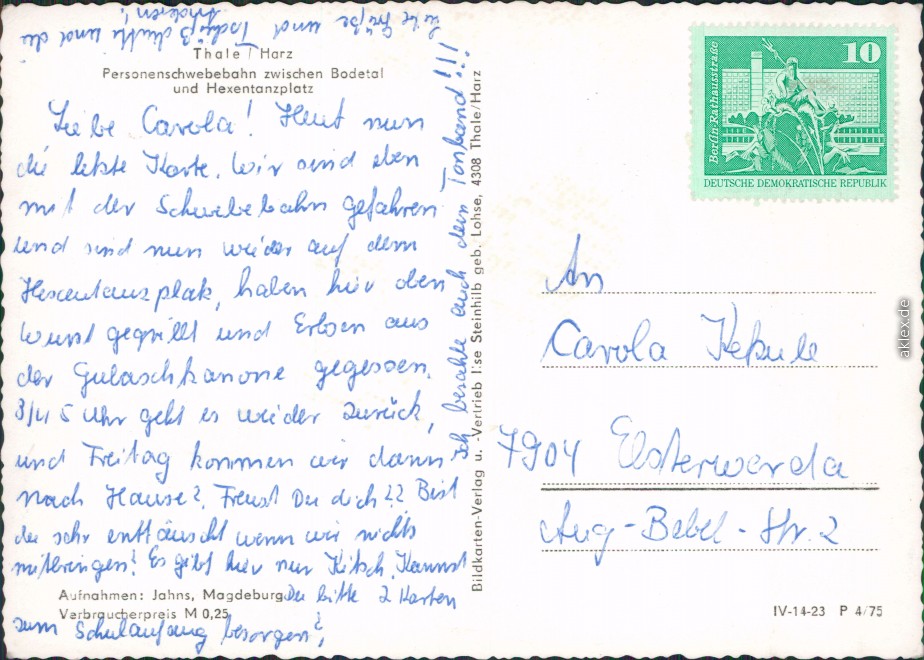 Thale / Harz
Personenschwebebahn zwischen Bodetal
und Hexentanzplatz
Liebe Carola! Heut nun
die letzte Karte. Wir sind eben
mit der Schwebebahn gefahren
und sind nun wieder auf dem
Hexentanzplatz, haben hier oben
Wurst gegrillt und Erbsen aus
der Gulaschkanone gegessen.
3/4 5 Uhr geht es wieder zurück,
und Freitag kommen wir dann
nach Hause? Freust Du dich?? Bist
du sehr enttäuscht wenn wir nichts
mitbringen? Es gibt hier nur Kitsch. Kannst
Du bitte 2 Karten
zum Schulanfang besorgen?,
Ich bezahle auch dein Tonband!!!
Liebe Grüße und Tschüß dichti und die
Anderen!
Aufnahmen: Jahns, Magdeburg
Verbraucherpreis M 0,25
Bildkarten-Verlag u. -Vertrieb Ilse Steinhilb geb. Lohse, 4308 Thale/Harz
Berlin-Rathausstraße
10
DEUTSCHE DEMOKRATISCHE REPUBLIK
An
Carola Kekule
7904 Elsterwerda
Aug-Bebel-Str. 2
IV-14-23 P 4/75
aklex.de